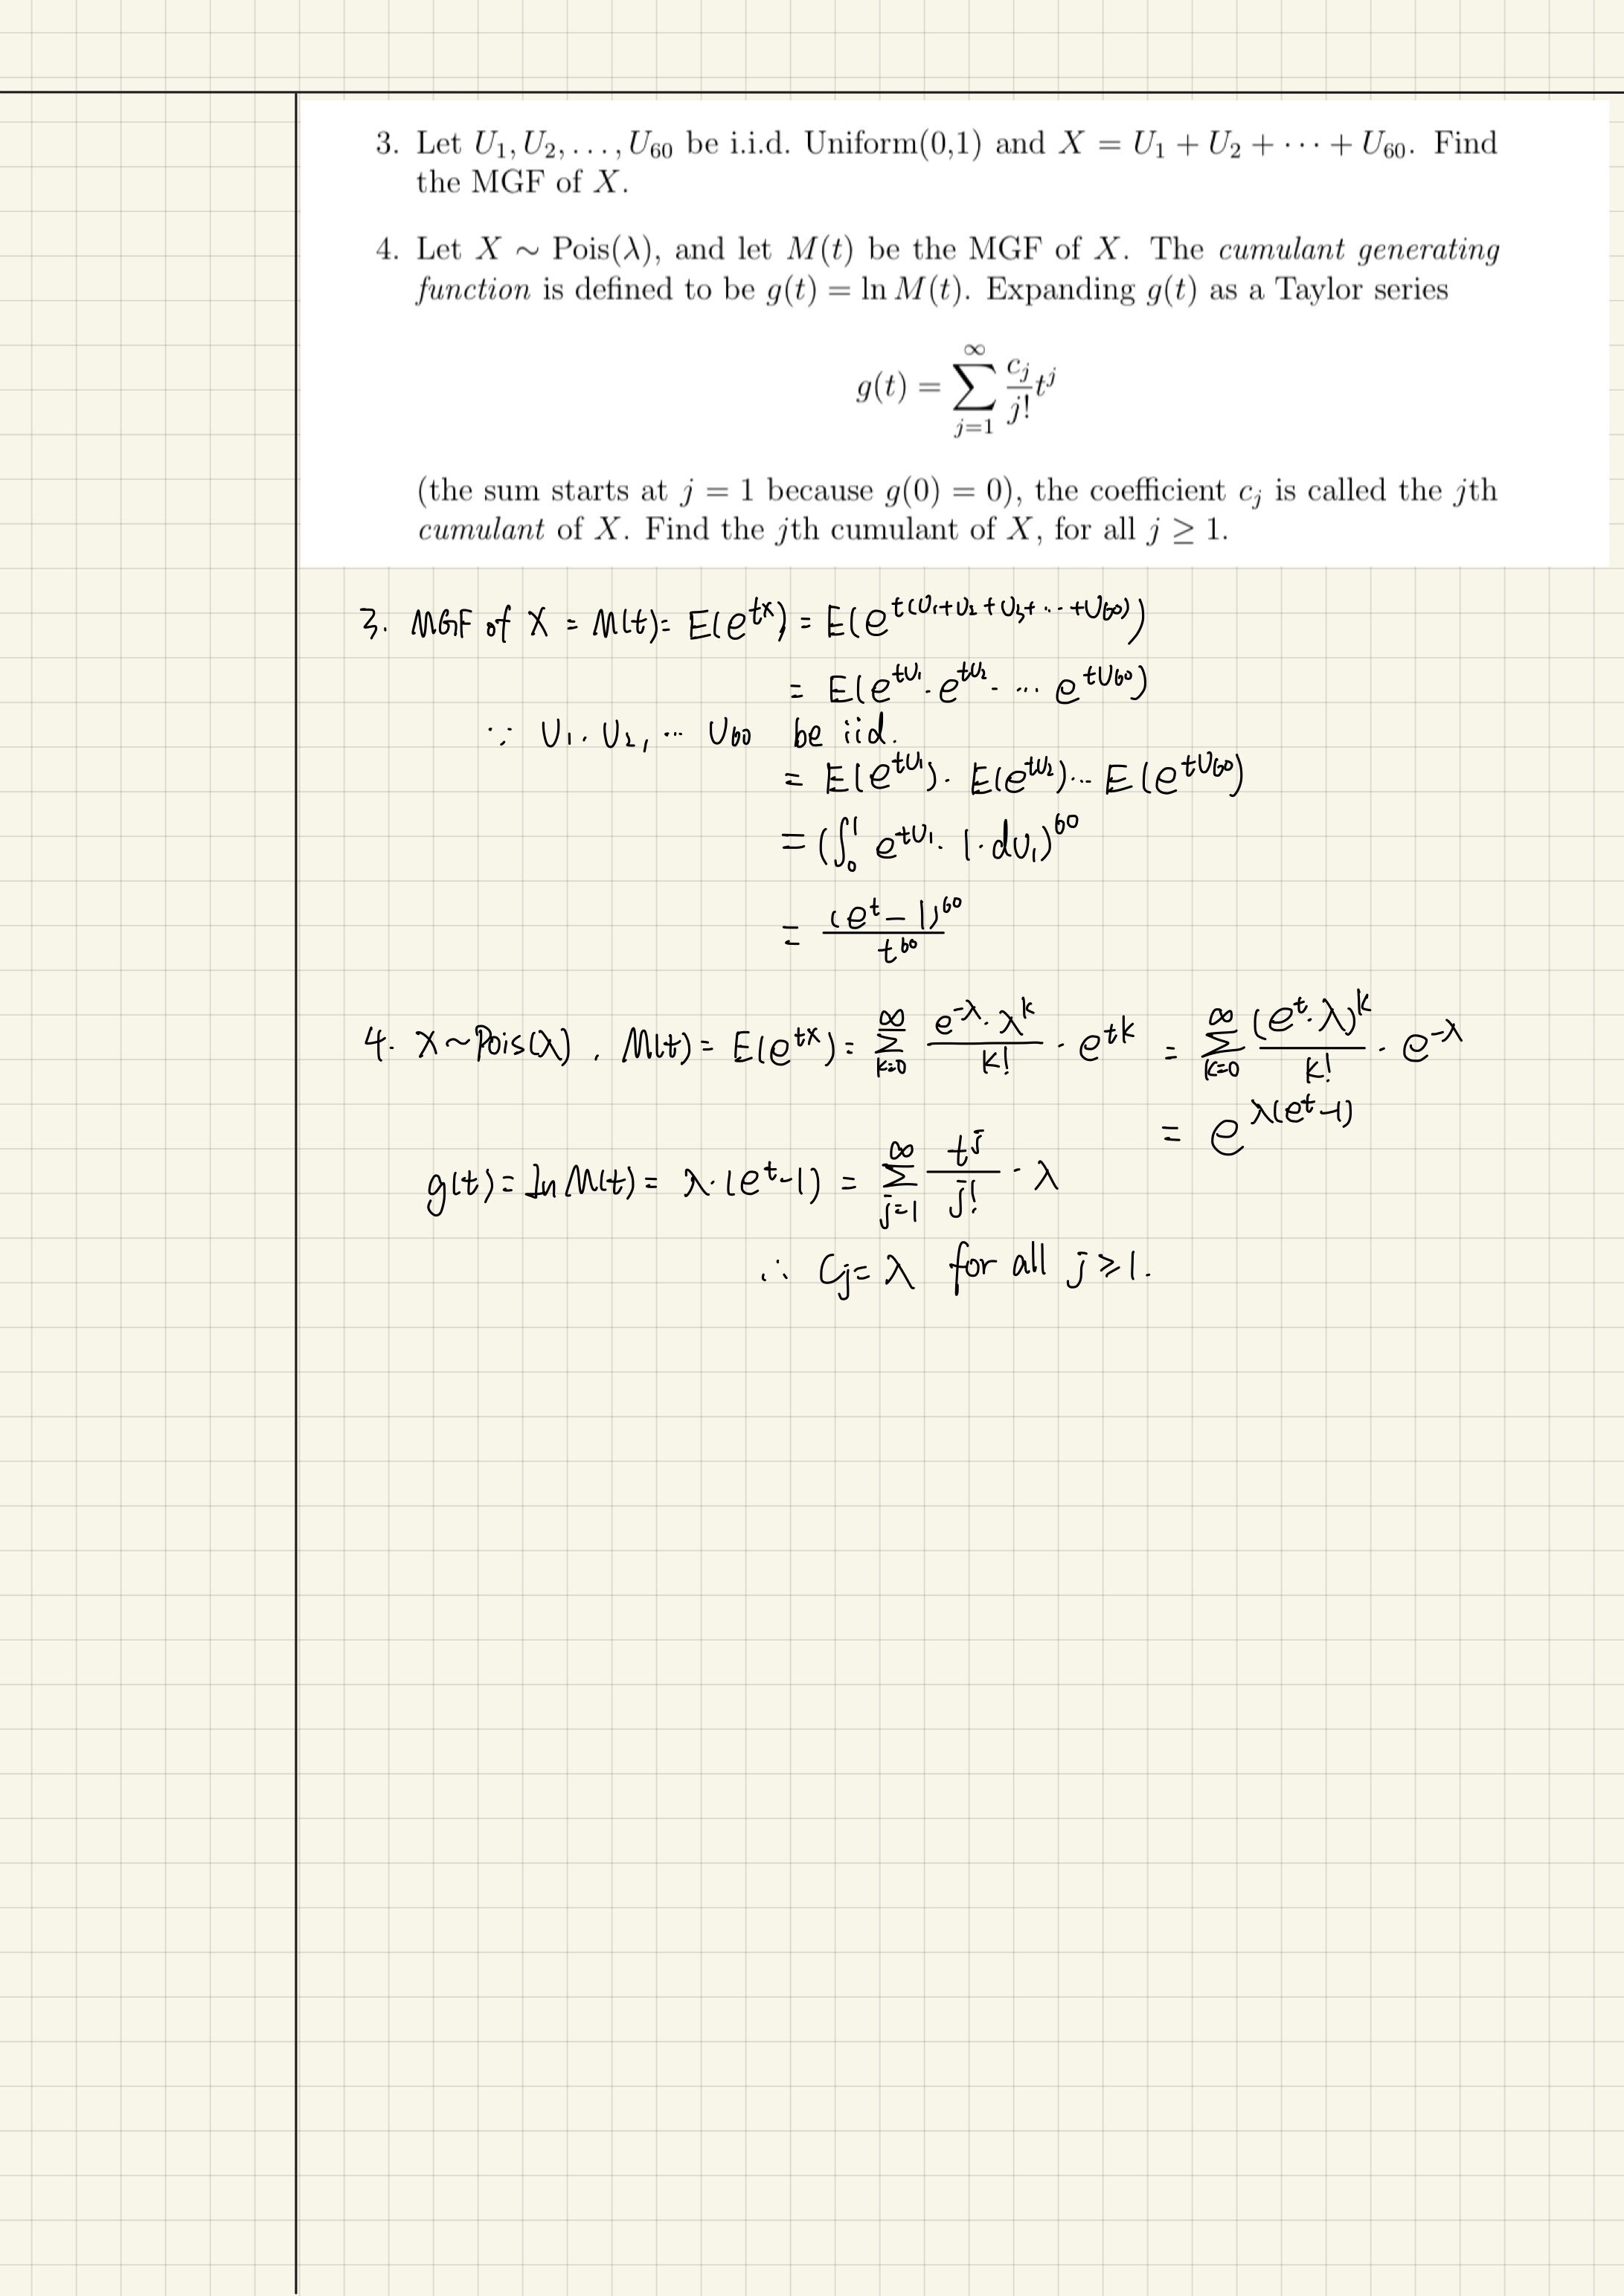 3. Let U₁, U₂, …, U₆₀ be i.i.d. Uniform(0,1) and X = U₁ + U₂ + ⋯ + U₆₀. Find
the MGF of X.
4. Let X ∼ Pois(λ), and let M(t) be the MGF of X. The cumulant generating
function is defined to be g(t) = ln M(t). Expanding g(t) as a Taylor series
g(t) = ∑_{j=1}^{∞} (c_j / j!) t^j
(the sum starts at j = 1 because g(0) = 0), the coefficient c_j is called the jth
cumulant of X. Find the jth cumulant of X, for all j ≥ 1.
3. MGF of X = M(t) = E(e^{tx}) = E(e^{t(U₁+U₂+U₃+⋯+U₆₀)})
= E(e^{tU₁} · e^{tU₂} · ⋯ e^{tU₆₀})
∵ U₁, U₂, ⋯ U₆₀ be iid.
= E(e^{tU₁}) · E(e^{tU₂}) ⋯ E(e^{tU₆₀})
= (∫₀¹ e^{tU₁} · 1 · dU₁)^{60}
= (e^t − 1)^{60} / t^{60}
4. X ~ Pois(λ), M(t) = E(e^{tx}) = ∑_{k=0}^{∞} (e^{-λ} · λ^k / k!) · e^{tk} = ∑_{k=0}^{∞} ((e^t · λ)^k / k!) · e^{-λ}
= e^{λ(e^t − 1)}
g(t) = ln M(t) = λ · (e^t − 1) = ∑_{j=1}^{∞} (t^j / j!) · λ
∴ C_j = λ for all j ≥ 1.